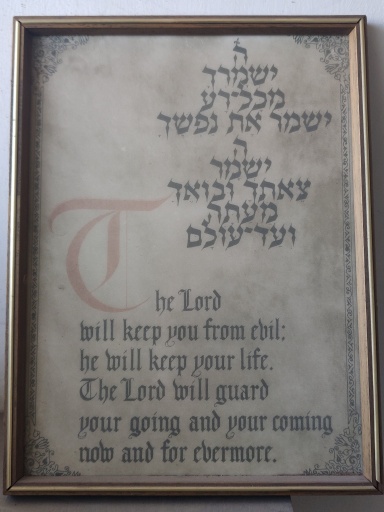 ה
ישמרך
מכל־רע
ישמר את נפשך
ה
ישמר
צאתך ובואך
מעתה
ועד־עולם
The Lord
will keep you from evil:
he will keep your life.
The Lord will guard
your going and your coming
now and for evermore.